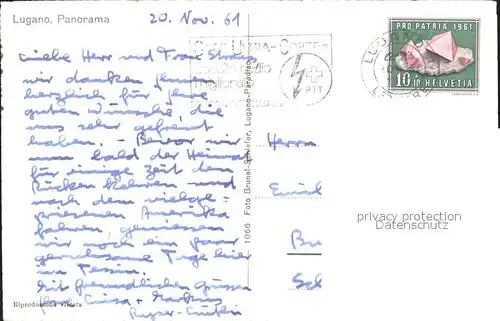 Lugano, Panorama
20. Nov. 61
Liebe Herr und Frau Strauss
wir danken Ihnen
herzlich für Ihre
guten Wünsche, die
uns sehr gefreut
haben. - Bevor wir
nun bald der Heimat
für einige Zeit den
Rücken kehren und
nach dem vielge-
priesenen Amerika
fahren, geniessen
wir noch ein paar
geruhsame Tage hier
im Tessin.
Mit freundlichen Grüssen
Ihre
Riproduzione vietata
1066 Foto Brunel-Schiefer, Lugano-Paradiso
LUGANO
PRO PATRIA 1961
10+10 HELVETIA
Herrn
privacy protection
Datenschutz